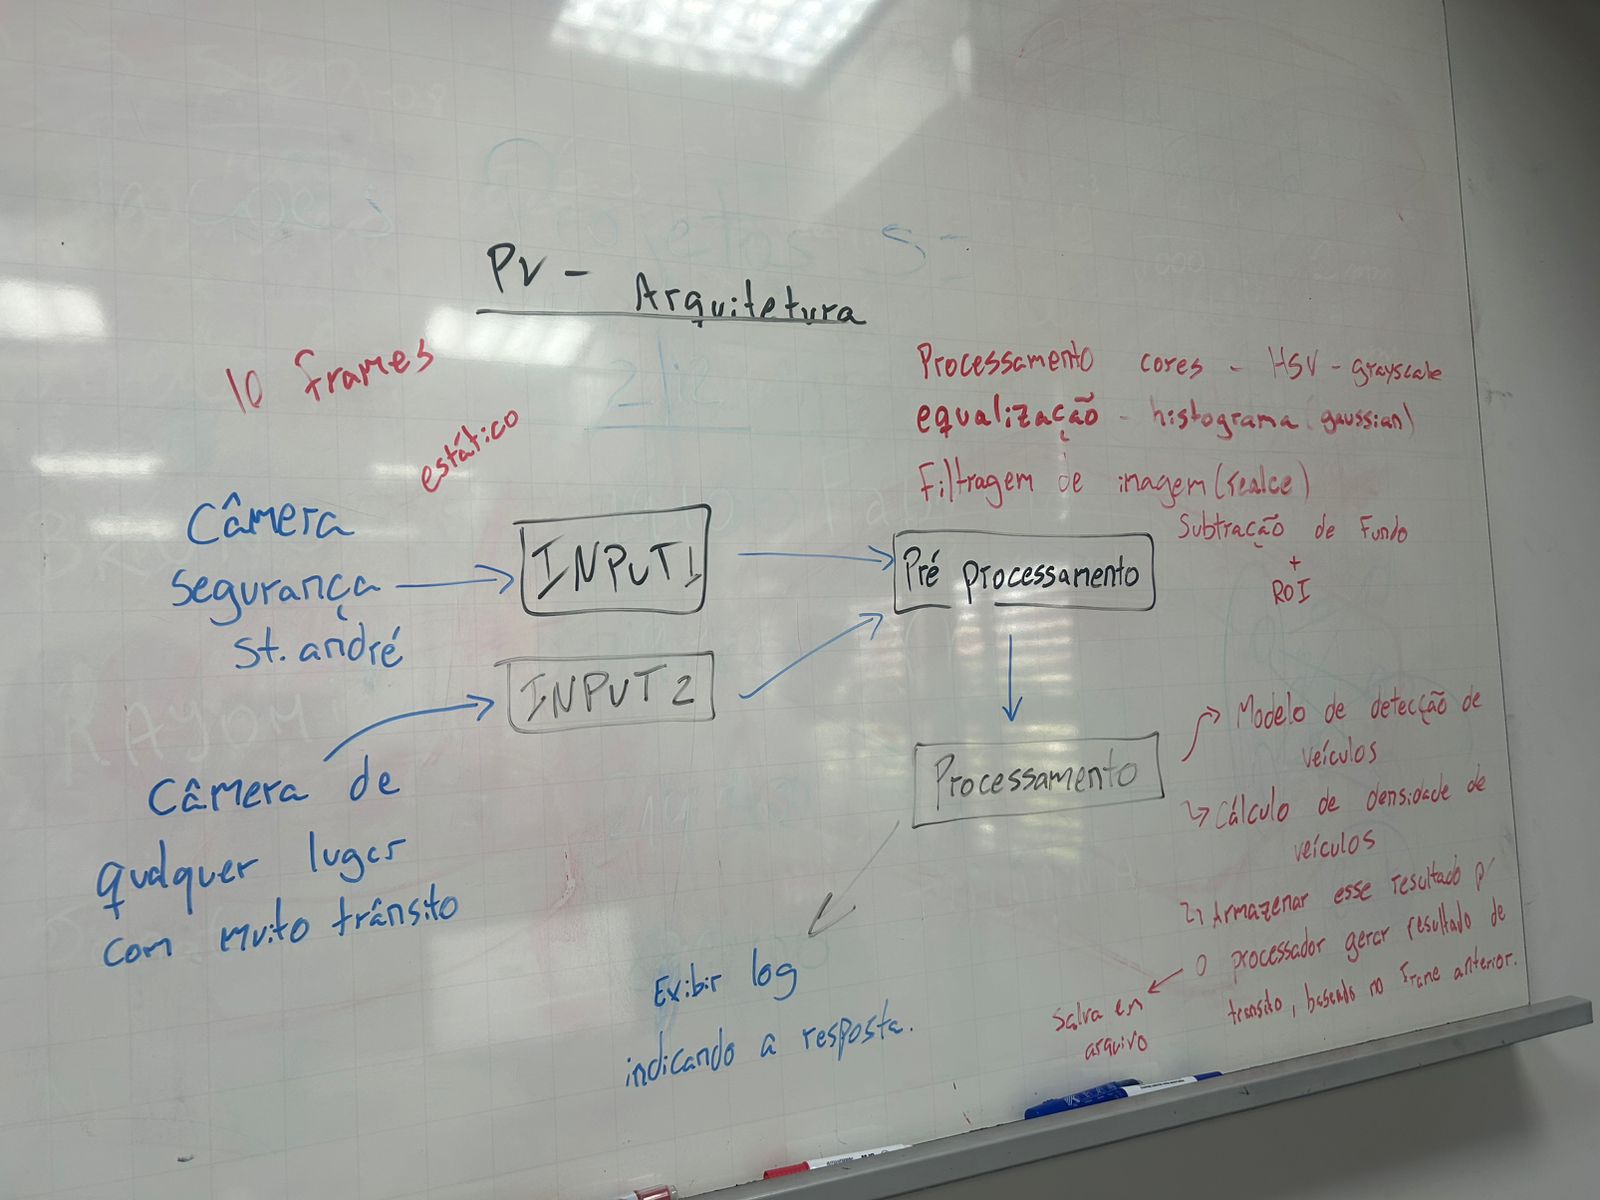 Projetos SI
PV - Arquitetura
2/12
10 frames
estático
Processamento cores - HSV - grayscale
equalização - histograma (gaussian)
Filtragem de imagem (realce)
Subtração de Fundo
+
ROI
Câmera
segurança
st. andré
INPUT1
Pré processamento
INPUT 2
Câmera de
qualquer lugar
com muito trânsito
Processamento
Modelo de detecção de
veículos
Cálculo de densidade de
veículos
Armazenar esse resultado p/
o processador gerar resultado de
transito, baseado no frame anterior.
Salva em
arquivo
Exibir log
indicando a resposta.